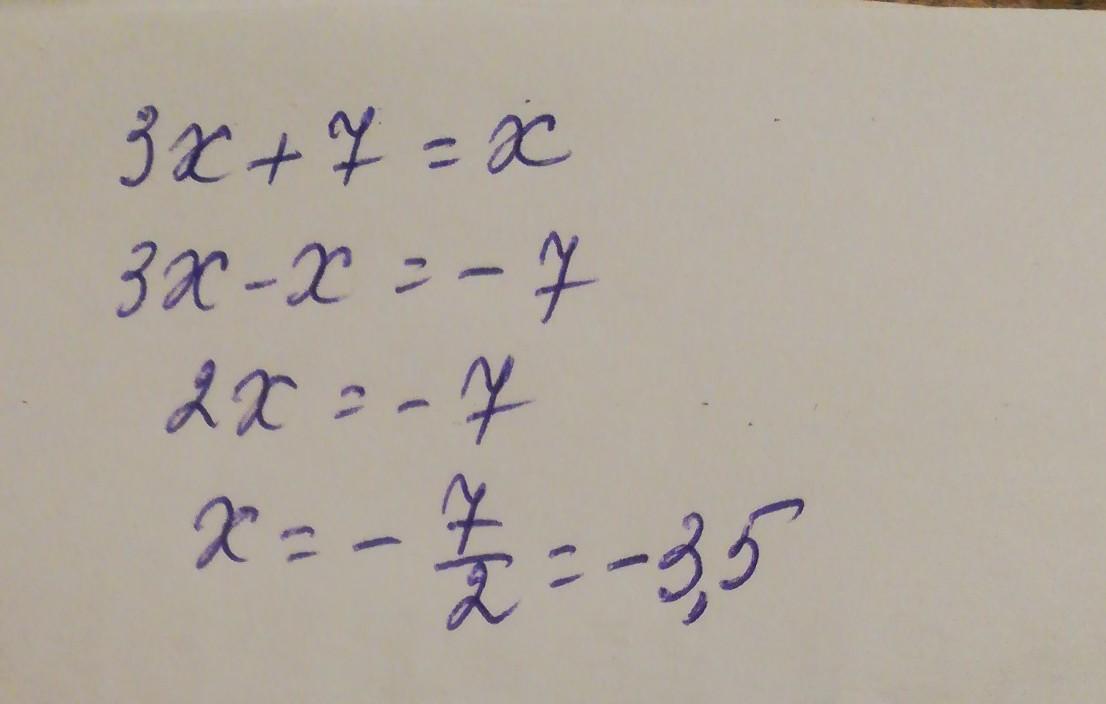 3x + 7 = x
3x - x = - 7
2x = - 7
x = - 7/2 = -3,5